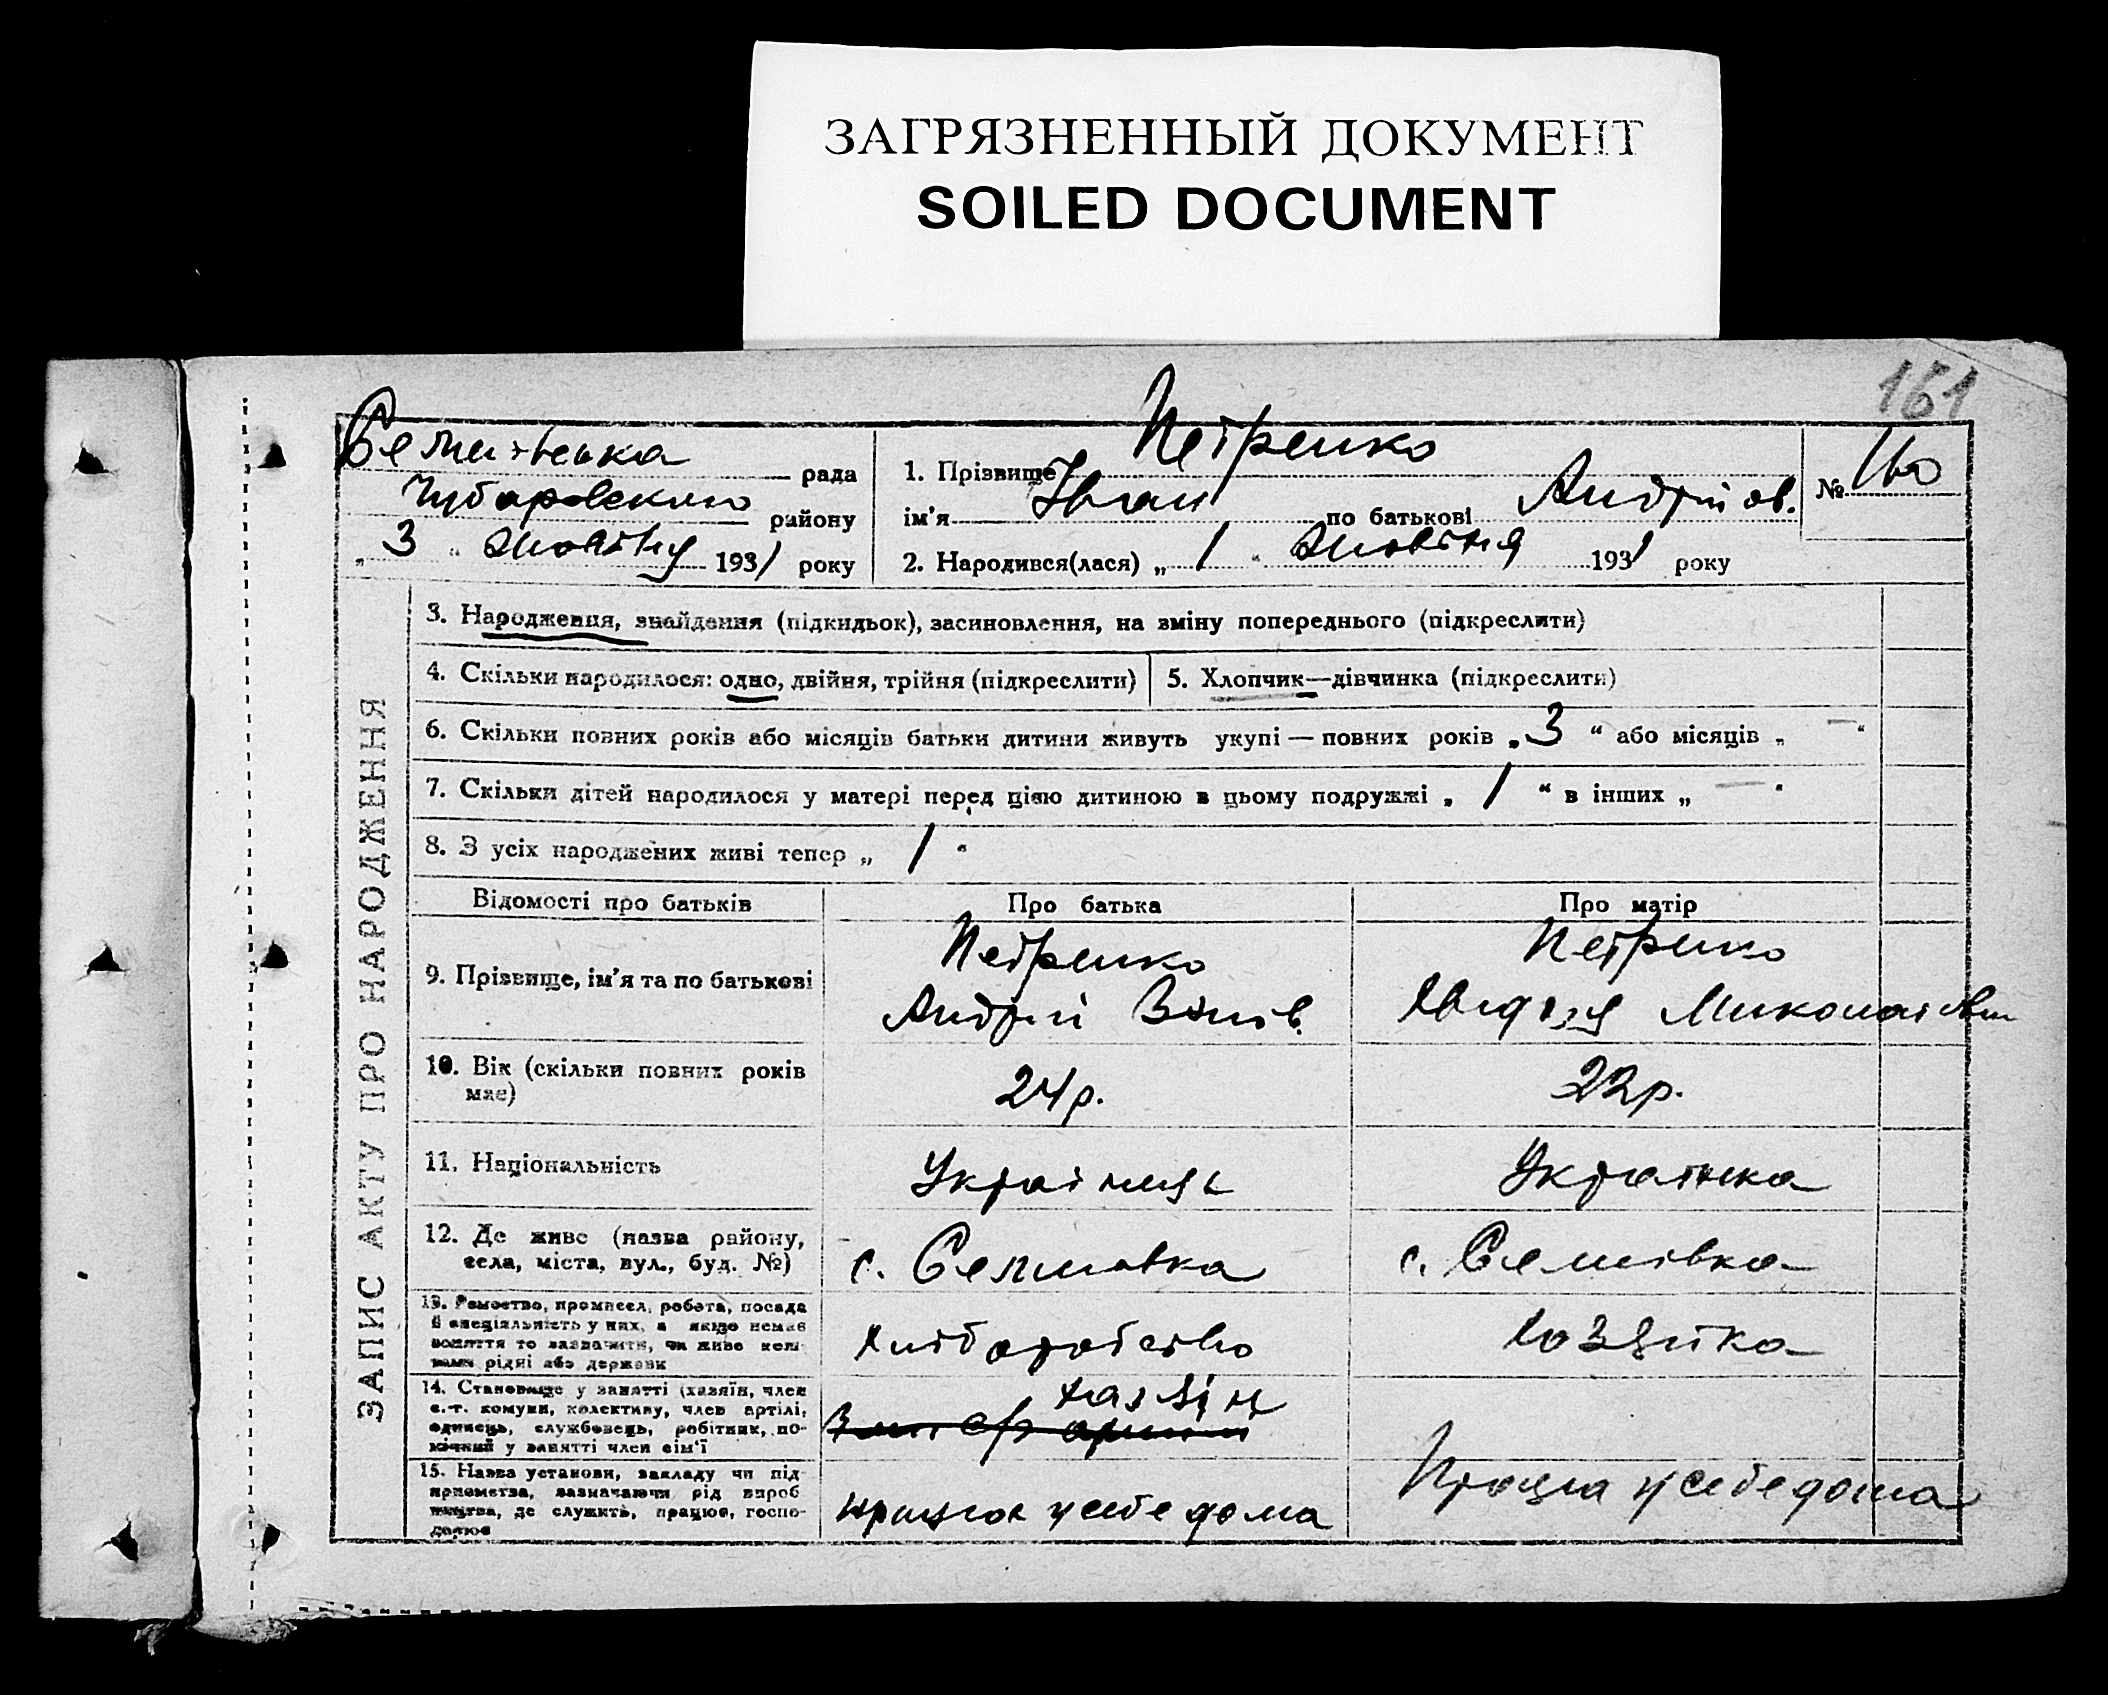 ЗАГРЯЗНЕННЫЙ ДОКУМЕНТ
SOILED DOCUMENT
161
ЗАПИС АКТУ ПРО НАРОДЖЕННЯ
Семенівська рада
Чубаровського району
„ 3 “ жовтня 1931 року
1. Прізвище Петренко
ім'я Іван по батькові Андрійов.
№ 160
2. Народився(лася) „ 1 “ жовтня 1931 року
3. Народження, знайдення (підкидьок), засиновлення, на зміну попереднього (підкреслити)
4. Скільки народилося: одно, двійня, трійня (підкреслити)
5. Хлопчик—дівчинка (підкреслити)
6. Скільки повних років або місяців батьки дитини живуть укупі — повних років „ 3 “ або місяців „ — “
7. Скільки дітей народилося у матері перед цією дитиною в цьому подружжі „ 1 “ в інших „ — “
8. З усіх народжених живі тепер „ 1 “
Відомості про батьків
Про батька
Про матір
9. Прізвище, ім'я та по батькові
Петренко
Андрій
Петренко
10. Вік (скільки повних років має)
24 р.
22 р.
11. Національність
Українець
Українка
12. Де живе (назва району,
села, міста, вул., буд. №)
с. Семенівка
с. Семенівка
13. Ремество, промисел, робота, посада
й спеціяльність у них, а якщо немає
заняття то зазначити, чи живе кош-
тами рідні або держави
Хліборобство
хозяйка
14. Становище у занятті (хазяїн, член
с.-г. комуни, колективу, член артілі,
одинець, службовець, робітник, по-
мічний у занятті член сім'ї
хазяїн
15. Назва установи, закладу чи під-
приємства, зазначаючи рід вироб-
ництва, де служить, працює, госпо-
дарює
працює у себе дома
Працює у себе дома